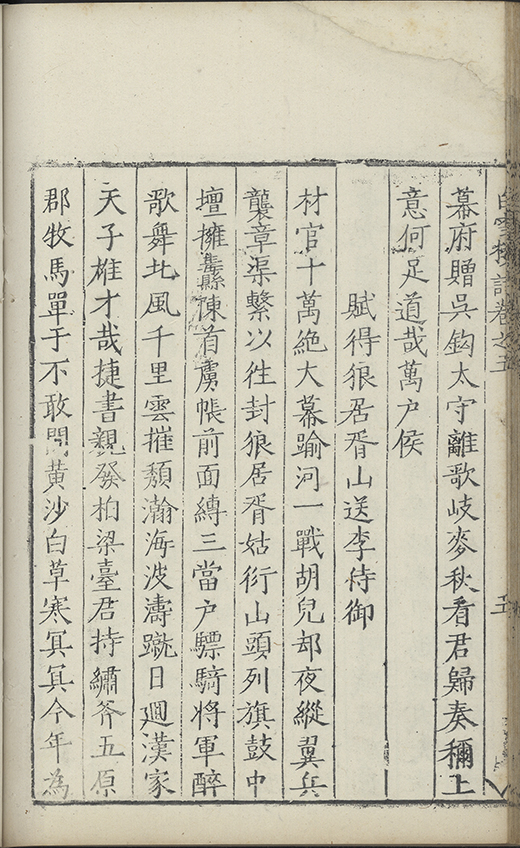 白雪樓詩卷之五
五
幕府贈吳鈎太守離歌岐麥秋看君歸奏稱上
意何足道哉萬戶侯
賦得狼居胥山送李侍御
材官十萬絕大幕踰河一戰胡兒却夜縱翼兵
襲章渠繫以徃封狼居胥姑衍山頭列旗鼓中
壇擁纛縣陳首虜帳前面縛三當户驃騎將軍醉
歌舞北風千里雲摧頹瀚海波濤蹴日迴漢家
天子雄才哉捷書親發柏梁臺君持繡斧五原
郡牧馬單于不敢問黃沙白草寒冥冥今年為